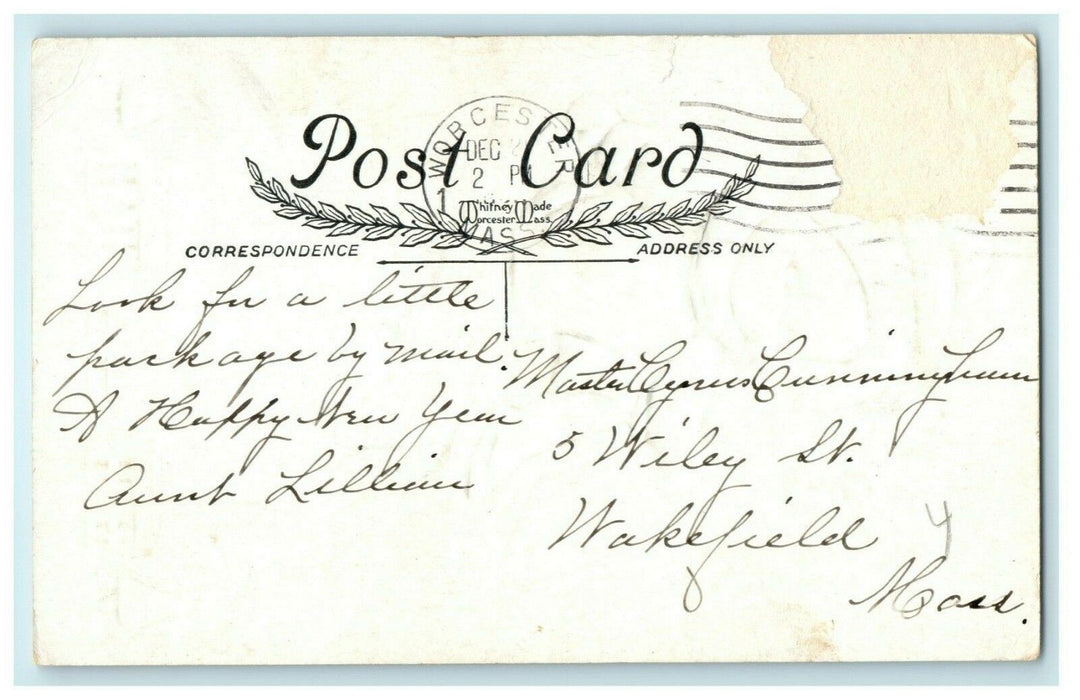 Post Card
WORCESTER
DEC
2 PM
1
MASS
Whitney Made
Worcester Mass.
CORRESPONDENCE
ADDRESS ONLY
Look for a little
package by mail.
A Happy New Year
Aunt Lillian
Master Cyrus Cunningham
5 Wiley St.
Wakefield
Mass.